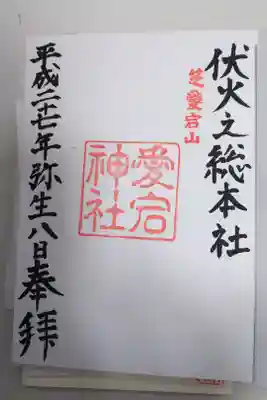 伏火之総本社
芝愛宕山
愛宕
神社
平成二十七年弥生八日奉拝